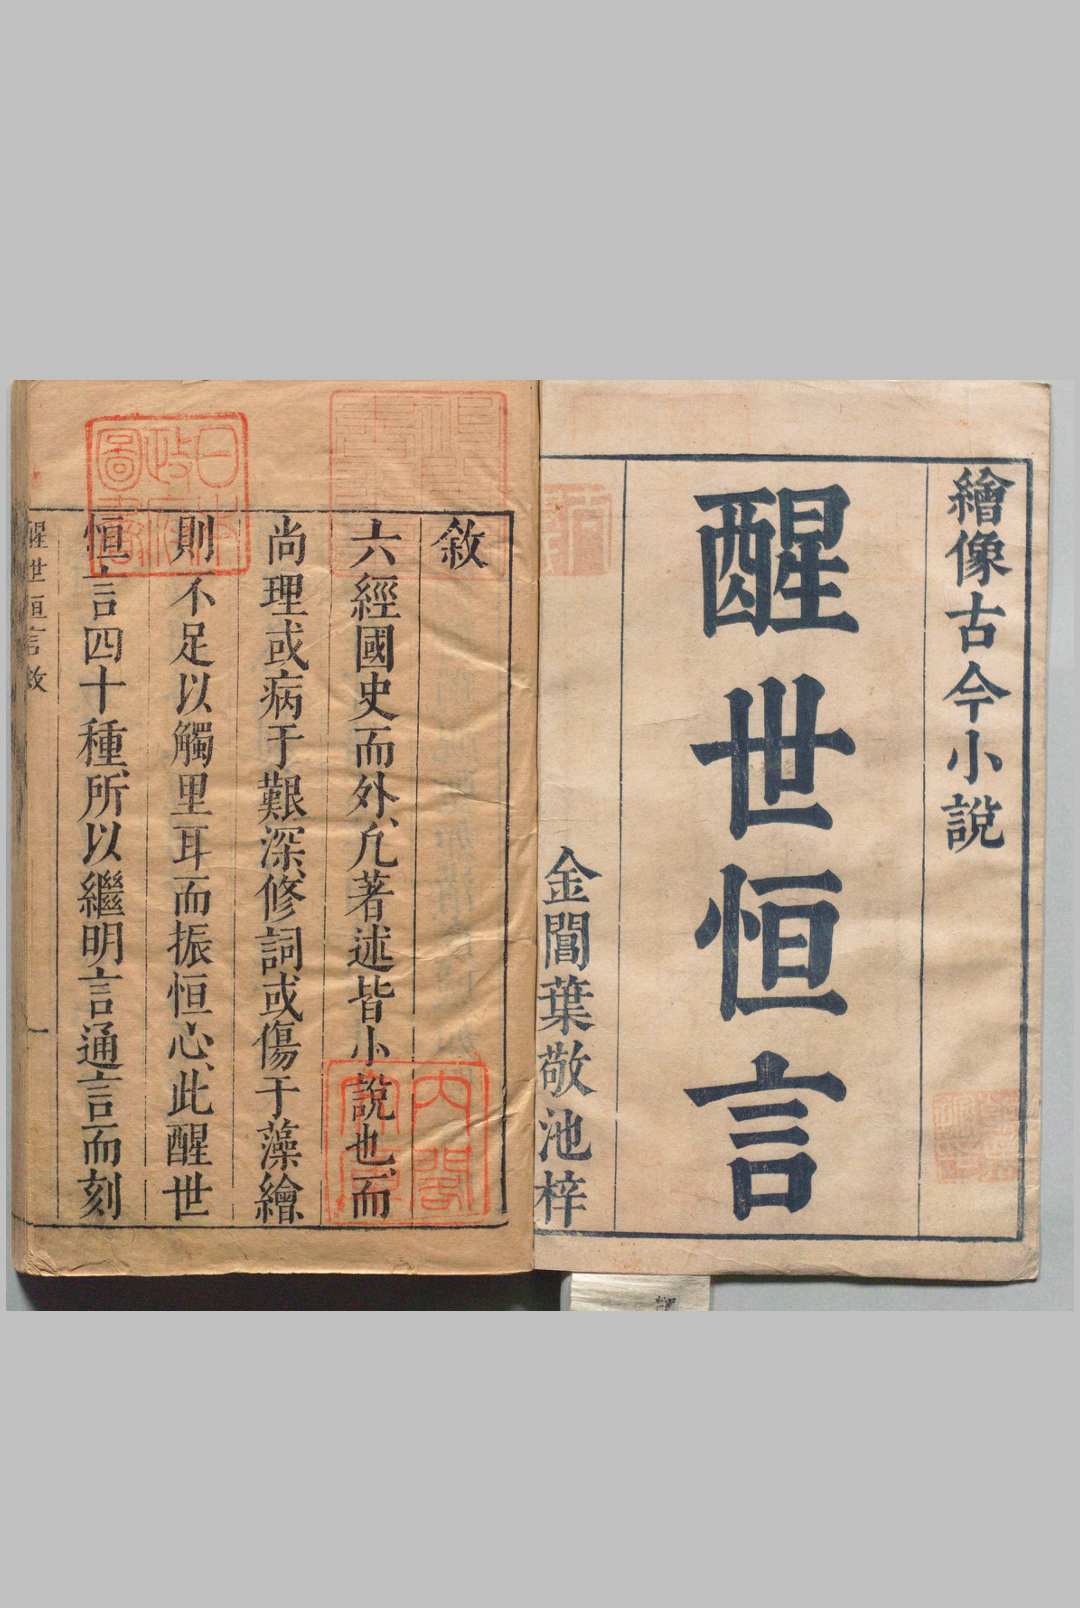 繪像古今小說
醒世恒言
金閶葉敬池梓
敘
六經國史而外、凢著述皆小說也、而
尚理或病于艱深、修詞或傷于藻繪
則不足以觸里耳而振恒心、此醒世
恒言四十種、所以繼明言通言而刻
醒世恒言敘
一
日本政府圖書
內閣文庫